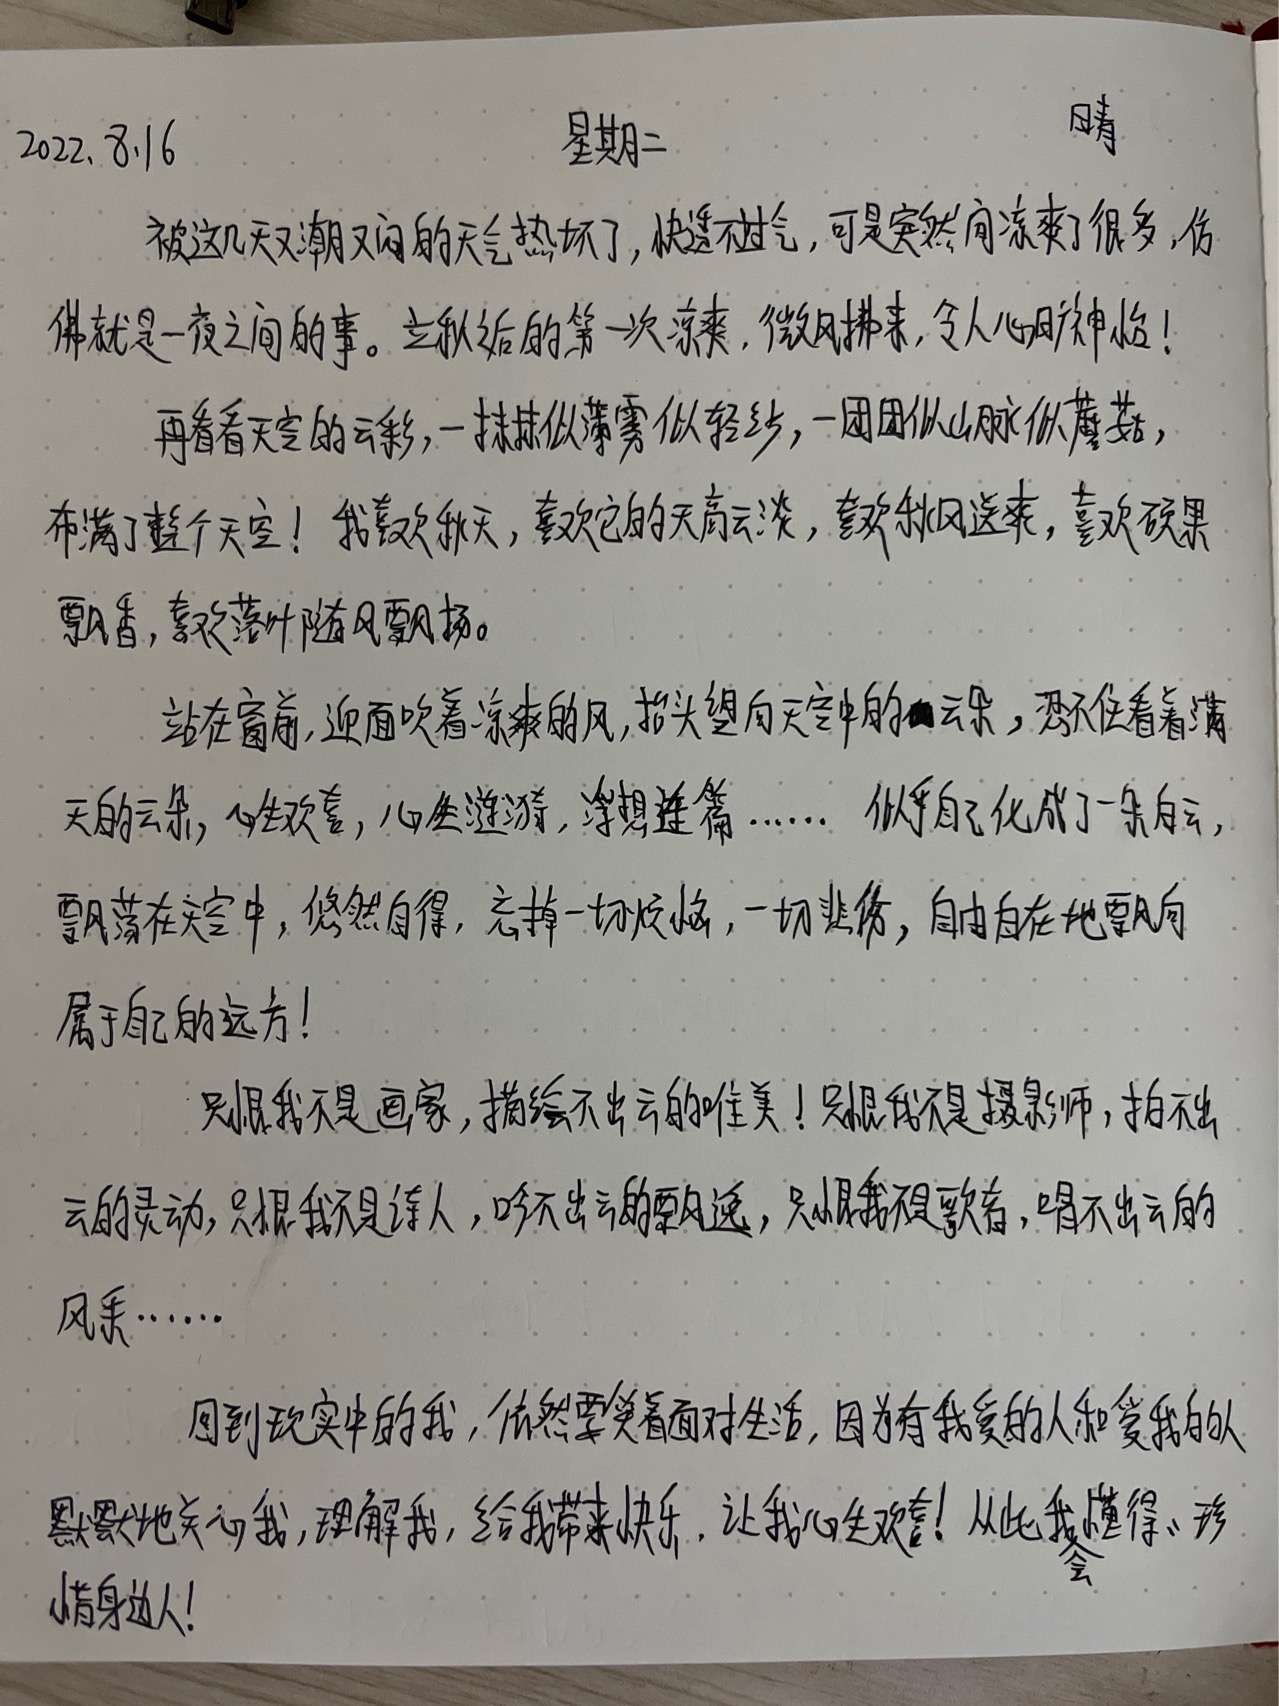 2022.8.16 星期二 晴
被这几天又潮又闷的天气热坏了,快透不过气,可是突然间凉爽了很多,仿
佛就是一夜之间的事。立秋后的第一次凉爽,微风拂来,令人心旷神怡!
再看看天空的云彩,一抹抹似薄雾似轻纱,一团团似山脉似蘑菇,
布满了整个天空!我喜欢秋天,喜欢它的天高云淡,喜欢秋风送爽,喜欢硕果
飘香,喜欢落叶随风飘扬。
站在窗前,迎面吹着凉爽的风,抬头望向天空中的云朵,忍不住看着满
天的云朵,心生欢喜,心生涟漪,浮想连篇…… 似乎自己化成了一朵白云,
飘荡在天空中,悠然自得,忘掉一切烦恼,一切悲伤,自由自在地飘向
属于自己的远方!
只恨我不是画家,描绘不出云的唯美!只恨我不是摄影师,拍不出
云的灵动,只恨我不是诗人,吟不出云的飘逸,只恨我不是歌者,唱不出云的
风采……
回到现实中的我,依然要笑着面对生活,因为有我爱的人和爱我的人
默默地关心我,理解我,给我带来快乐,让我心生欢喜!从此我会懂得:珍
惜身边人!